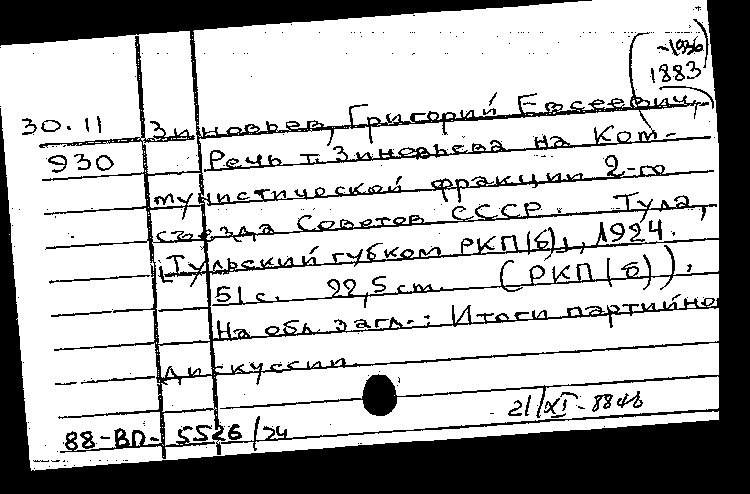 -1936
1883
30.11 Зиновьев, Григорий Евсеевич,
930 Речь т. Зиновьева на Ком-
мунистической фракции 2-го
съезда Советов СССР. Тула,
[Тульский губком РКП(б)], 1924.
51 с. 22,5 cm. (РКП(б)).
На обл. загл.: Итоги партийно
дискуссии.
21/XI-88
88-BD- 5526/24